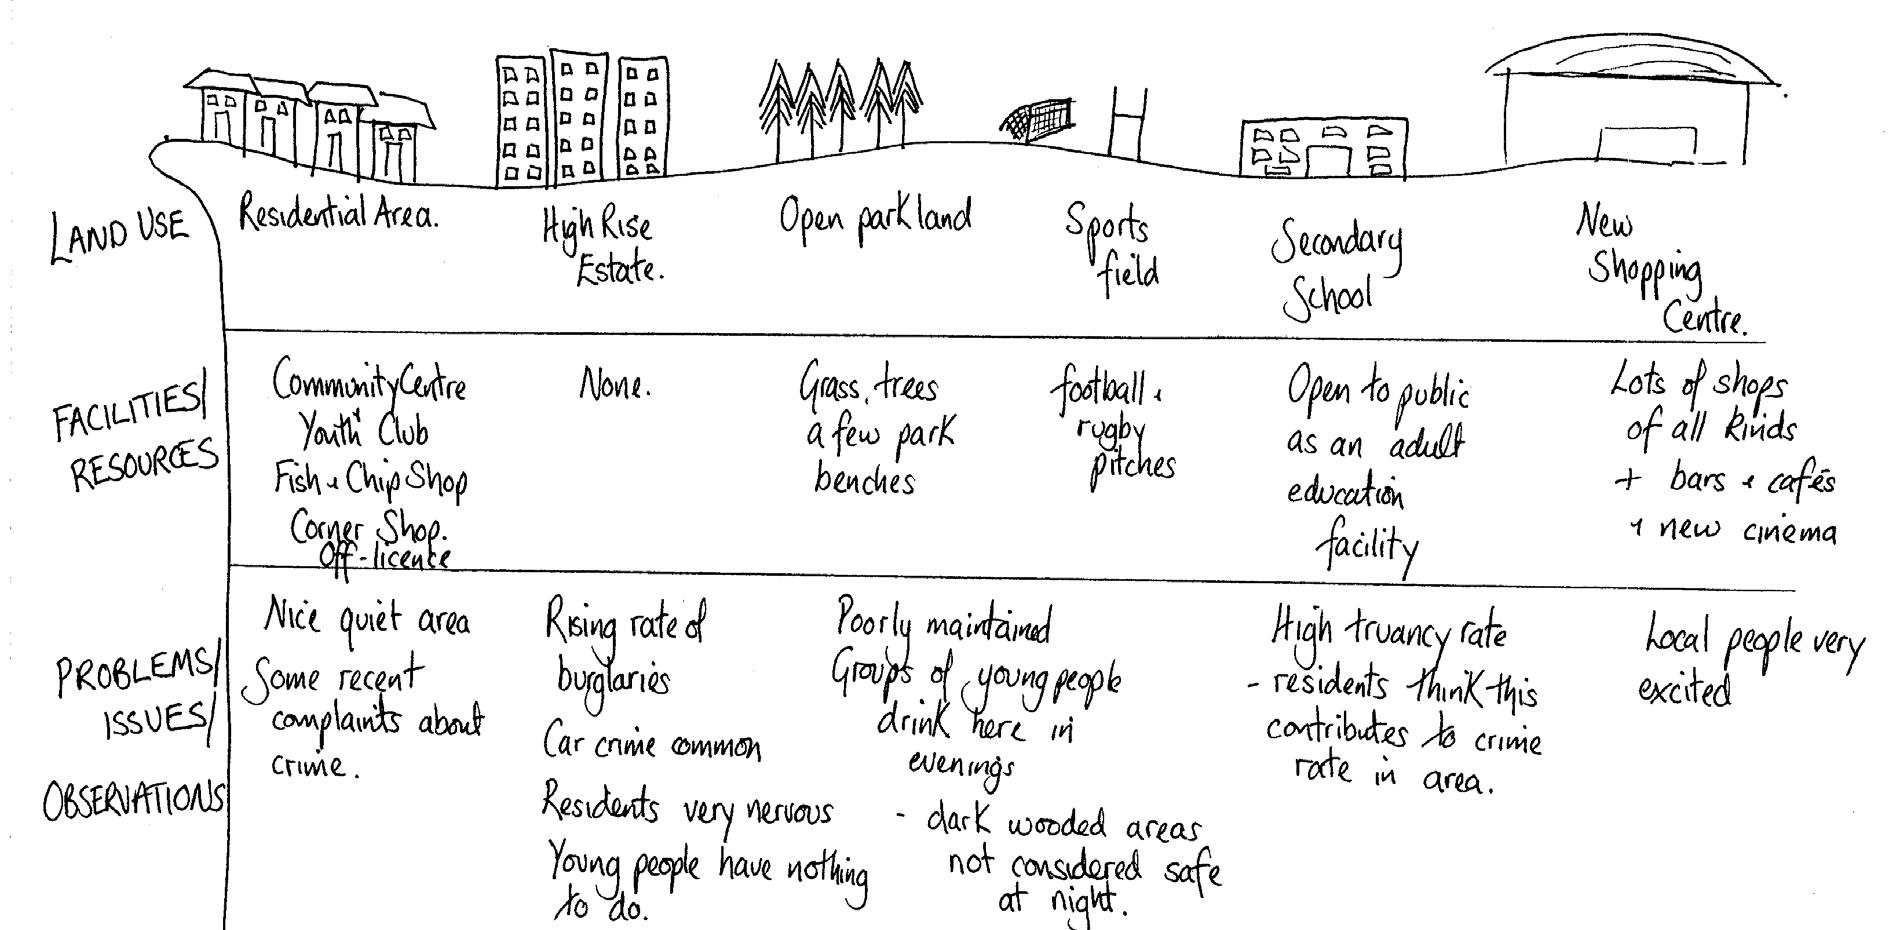 LAND USE
Residential Area.
High Rise
Estate.
Open parkland
Sports
field
Secondary
School
New
Shopping
Centre.
FACILITIES/
RESOURCES
Community Centre
Youth Club
Fish & Chip Shop
Corner Shop.
Off-licence
None.
Grass, trees
a few park
benches
football &
rugby
pitches
Open to public
as an adult
education
facility
Lots of shops
of all kinds
+ bars & cafés
+ new cinema
PROBLEMS/
ISSUES/
OBSERVATIONS
Nice quiet area
Some recent
complaints about
crime.
Rising rate of
burglaries
Car crime common
Residents very nervous
Young people have nothing
to do.
Poorly maintained
Groups of young people
drink here in
evenings
- dark wooded areas
not considered safe
at night.
High truancy rate
- residents think this
contributes to crime
rate in area.
Local people very
excited